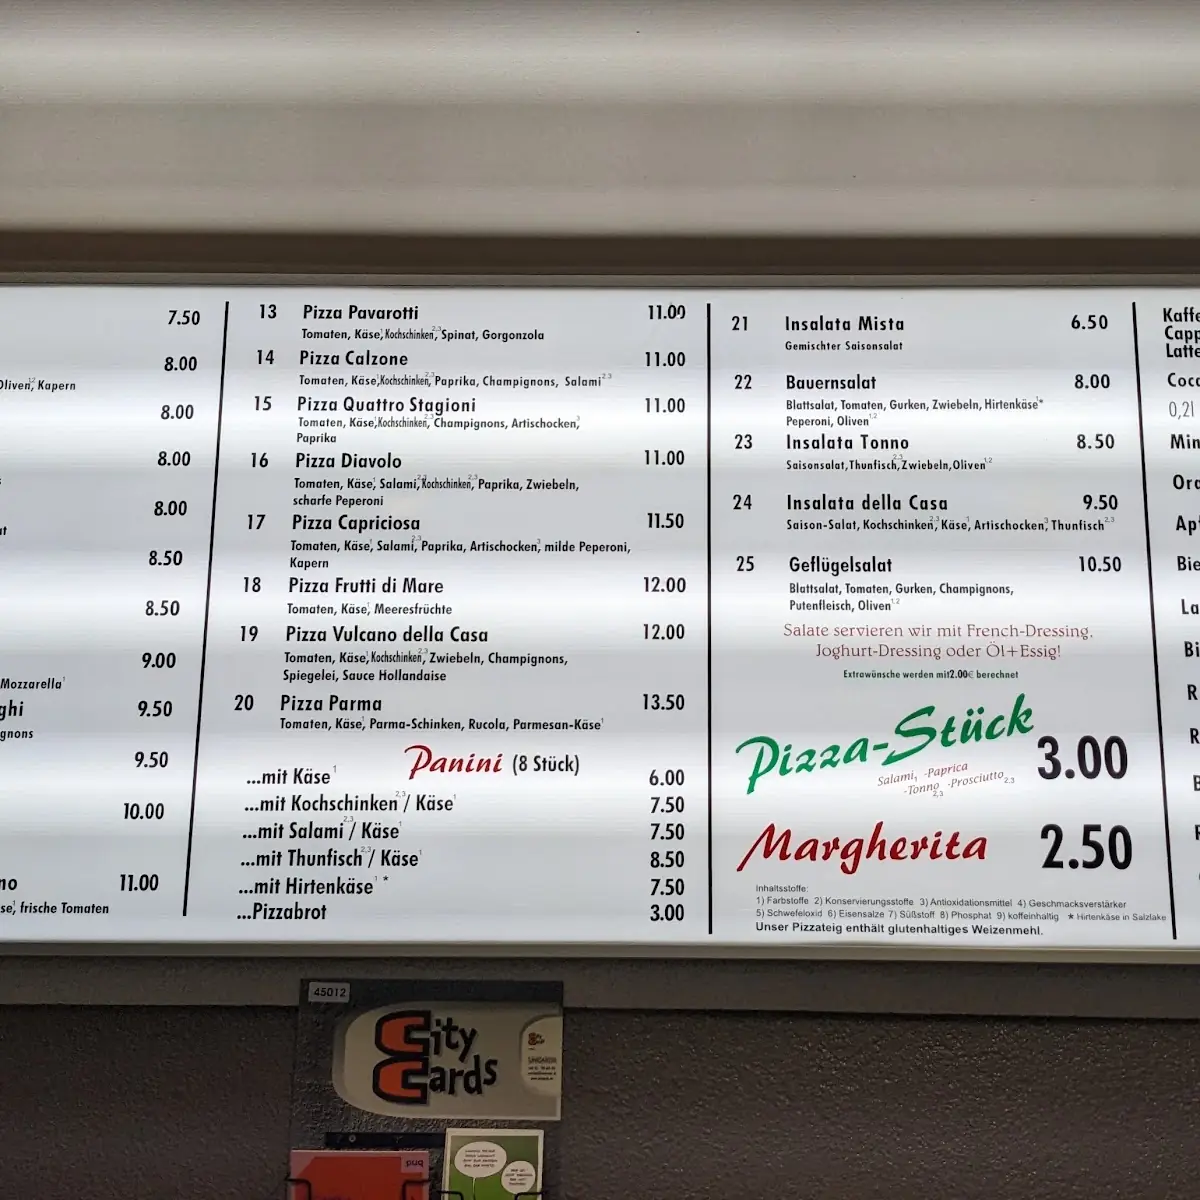 7.50
8.00
Oliven,¹² Kapern
8.00
8.00
8.00
8.50
8.50
9.00
Mozzarella¹
9.50
9.50
10.00
11.00
frische Tomaten
13 Pizza Pavarotti 11.00
Tomaten, Käse,¹ Kochschinken,²,³ Spinat, Gorgonzola
14 Pizza Calzone 11.00
Tomaten, Käse,¹ Kochschinken,²,³ Paprika, Champignons, Salami²,³
15 Pizza Quattro Stagioni 11.00
Tomaten, Käse,¹ Kochschinken,²,³ Champignons, Artischocken,³
Paprika
16 Pizza Diavolo 11.00
Tomaten, Käse,¹ Salami,²,³ Kochschinken,²,³ Paprika, Zwiebeln,
scharfe Peperoni
17 Pizza Capriciosa 11.50
Tomaten, Käse,¹ Salami,²,³ Paprika, Artischocken,³ milde Peperoni,
Kapern
18 Pizza Frutti di Mare 12.00
Tomaten, Käse,¹ Meeresfrüchte
19 Pizza Vulcano della Casa 12.00
Tomaten, Käse,¹ Kochschinken,²,³ Zwiebeln, Champignons,
Spiegelei, Sauce Hollandaise
20 Pizza Parma 13.50
Tomaten, Käse,¹ Parma-Schinken, Rucola, Parmesan-Käse¹
Panini (8 Stück)
...mit Käse¹ 6.00
...mit Kochschinken²,³/ Käse¹ 7.50
...mit Salami²,³/ Käse¹ 7.50
...mit Thunfisch²,³/ Käse¹ 8.50
...mit Hirtenkäse¹ * 7.50
...Pizzabrot 3.00
21 Insalata Mista 6.50
Gemischter Saisonsalat
22 Bauernsalat 8.00
Blattsalat, Tomaten, Gurken, Zwiebeln, Hirtenkäse¹*
Peperoni, Oliven¹,²
23 Insalata Tonno 8.50
Saisonsalat, Thunfisch,²,³ Zwiebeln, Oliven¹,²
24 Insalata della Casa 9.50
Saison-Salat, Kochschinken,²,³ Käse,¹ Artischocken,³ Thunfisch²,³
25 Geflügelsalat 10.50
Blattsalat, Tomaten, Gurken, Champignons,
Putenfleisch, Oliven¹,²
Salate servieren wir mit French-Dressing,
Joghurt-Dressing oder Öl+Essig!
Extrawünsche werden mit 2.00€ berechnet
Pizza-Stück 3.00
Salami, -Paprica
-Tonno 2,3 -Prosciutto 2,3
Margherita 2.50
Inhaltsstoffe:
1) Farbstoffe 2) Konservierungsstoffe 3) Antioxidationsmittel 4) Geschmacksverstärker
5) Schwefeloxid 6) Eisensalze 7) Süßstoff 8) Phosphat 9) koffeinhaltig * Hirtenkäse in Salzlake
Unser Pizzateig enthält glutenhaltiges Weizenmehl.
Kaffe
Capp
Latte
Coca
0,2l
Min
Ora
Ap
Bie
La
Bi
R
R
45012
City
Cards